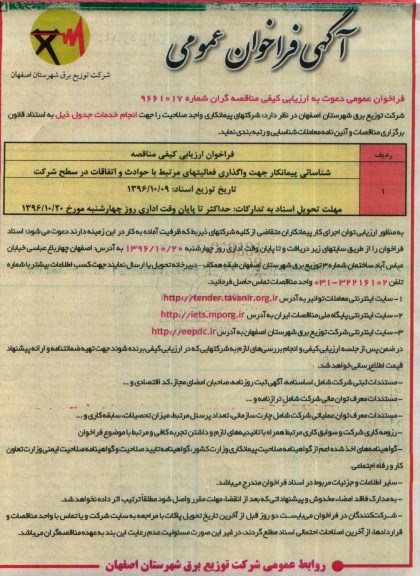 آگهی فراخوان عمومی
شرکت توزیع برق شهرستان اصفهان
فراخوان عمومی دعوت به ارزیابی کیفی مناقصه گران شماره ۹۶۶۱۰۱۷
شرکت توزیع برق شهرستان اصفهان در نظر دارد؛ شرکتهای پیمانکاری واجد صلاحیت را جهت انجام خدمات جدول ذیل به استناد قانون
برگزاری مناقصات و آئین نامه معاملات شناسایی و رتبه بندی نماید.
ردیف
فراخوان ارزیابی کیفی مناقصه
۱
شناسائی پیمانکار جهت واگذاری فعالیتهای مرتبط با حوادث و اتفاقات در سطح شرکت
تاریخ توزیع اسناد: ۱۳۹۶/۱۰/۰۹
مهلت تحویل اسناد به تدارکات: حداکثر تا پایان وقت اداری روز چهارشنبه مورخ ۱۳۹۶/۱۰/۲۰
به منظور ارزیابی توان اجرای کار پیمانکاران متقاضی از کلیه شرکتهای ذیربط که ظرفیت آماده به کار در این زمینه دارند دعوت می شود؛ اسناد
فراخوان را از طریق سایتهای زیر دریافت و تا پایان وقت اداری روز چهارشنبه ۱۳۹۶/۱۰/۲۰ به آدرس: اصفهان چهارباغ عباسی خیابان
عباس آباد ساختمان شماره ۳ توزیع برق شهرستان اصفهان طبقه همکف - دبیرخانه تحویل یا ارسال نمایند جهت کسب اطلاعات بیشتر با شماره
تلفن ۳۲۲۱۶۱۰۲-۰۳۱ واحد مناقصات تماس حاصل فرمایید.
۱- سایت اینترنتی معاملات توانیر به آدرس http://tender.tavanir.org.ir
۲- سایت اینترنتی پایگاه ملی مناقصات ایران به آدرس http://iets.mporg.ir
۳- سایت اینترنتی شرکت توزیع برق شهرستان اصفهان به آدرس http://eepdc.ir
در ضمن پس از جلسه ارزیابی کیفی و انجام بررسی های لازم به شرکتهایی که در ارزیابی کیفی برنده شوند جهت تهیه ضمانتنامه و ارائه پیشنهاد
قیمت اطلاع رسانی خواهد شد.
- مستندات ثبتی شرکت شامل اساسنامه، آگهی ثبت روزنامه، صاحبان امضای مجاز، کد اقتصادی و ...
- مستندات معرف توان مالی شرکت شامل ترازنامه و ...
- مستندات معرف توان عملیاتی شرکت شامل چارت سازمانی، تعداد پرسنل مرتبط، میزان تحصیلات، سابقه کاری و ...
- رزومه کاری شرکت و سوابق کاری مرتبط همراه با تائیدیه های لازم و داشتن تجربه کافی و مرتبط با موضوع فراخوان
- گواهینامه های اخذ شده اعم از گواهینامه صلاحیت پیمانکاری وزارت کشور، گواهینامه تایید صلاحیت و گواهینامه صلاحیت ایمنی وزارت تعاون
کار و رفاه اجتماعی
- سایر اطلاعات و جزئیات مربوط در اسناد فراخوان مندرج می باشد.
- به مدارک فاقد امضاء، مخدوش و پیشنهاداتی که بعد از انقضاء مهلت مقرر واصل شود مطلقاً ترتیب اثر داده نخواهد شد.
- شرکت کنندگان در فراخوان می بایست دو روز قبل از آخرین تاریخ تحویل پاکات با مراجعه به سایت شرکت و یا تماس با واحد مناقصات و
قراردادها، از آخرین اصلاحات احتمالی اسناد مطلع گردند، در غیر این صورت مسئولیت عدم رعایت این بند به عهده مناقصه گران می باشد.
روابط عمومی شرکت توزیع برق شهرستان اصفهان